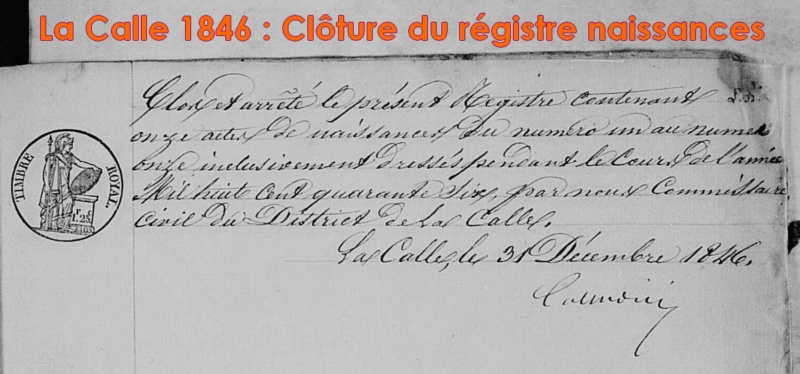 La Calle 1846 : Clôture du régistre naissances
Clos et arrêté le présent Registre contenant
onze actes de naissances du numéro un au numéro
onze inclusivement dressés pendant le Cours de l'année
Mil huit cent quarante Six, par nous Commissaire
civil du District de La Calle.
La Calle, le 31 Décembre 1846.
TIMBRE ROYAL